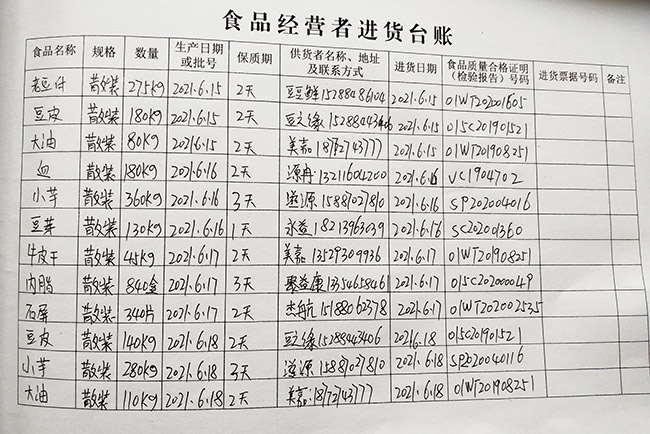 食品经营者进货台账
食品名称 规格 数量 生产日期或批号 保质期 供货者名称、地址及联系方式 进货日期 食品质量合格证明（检验报告）号码 进货票据号码 备注
老豆付 散装 275kg 2021.6.15 2天 豆鲜15288486104 2021.6.15 01WT202001605
豆皮 散装 180kg 2021.6.15 2天 豆之缘 15288443406 2021.6.15 015C201901521
大油 散装 80kg 2021.6.15 2天 美嘉 18772743777 2021.6.15 01WT201908251
血 散装 180kg 2021.6.16 2天 源冉 13211604200 2021.6.16 VC1904702
小芋 散装 360kg 2021.6.16 3天 滋源 15887027810 2021.6.16 SP202004016
豆芽 散装 130kg 2021.6.16 1天 永益 18213963039 2021.6.16 SC20201360
牛皮干 散装 45kg 2021.6.17 2天 美嘉 13529309936 2021.6.17 01WT201908251
内脂 散装 840盒 2021.6.17 3天 聚益康 13354658461 2021.6.17 015C202000049
石屏 散装 340片 2021.6.17 2天 杰航 15188062378 2021.6.17 01WT202002535
豆皮 散装 140kg 2021.6.18 2天 豆之缘 15288443406 2021.6.18 015C201901521
小芋 散装 280kg 2021.6.18 3天 滋源 15887027810 2021.6.18 SP202040116
大油 散装 110kg 2021.6.18 2天 美嘉:18772743777 2021.6.18 01WT201908251